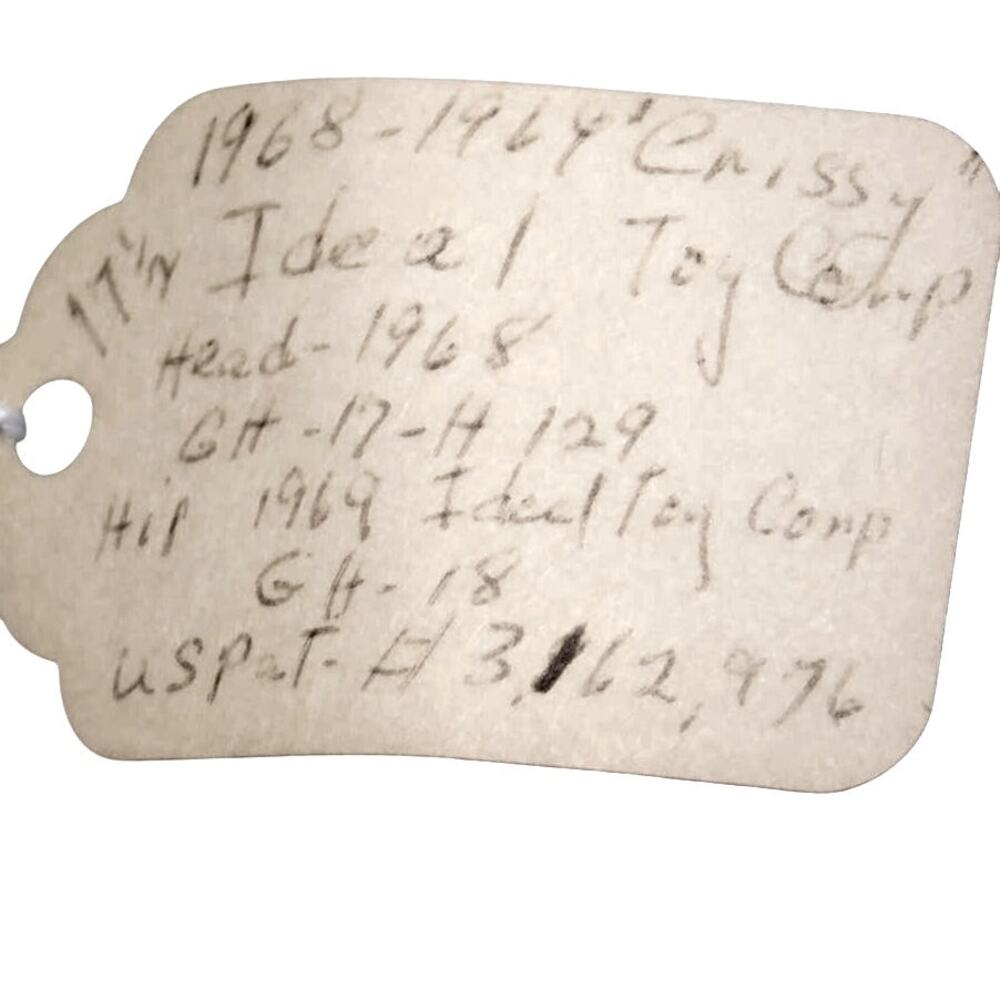 1968-1969 "Crissy"
17 in Ideal Toy Comp
Head-1968
GH-17-H 129
Hip 1969 Ideal Toy Comp
GH-18
USPaT-# 3,162,976